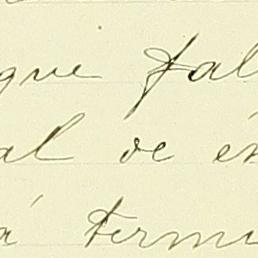 que fal
al de é
á termi